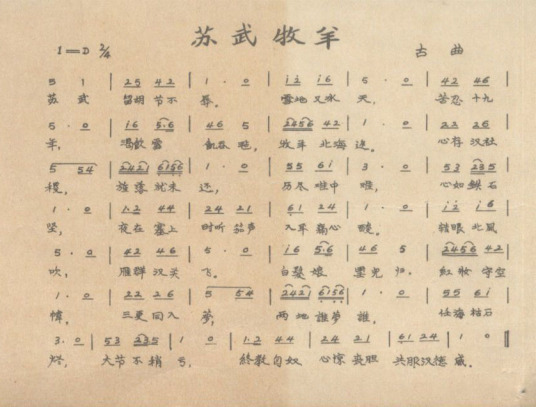 苏武牧羊
1=D 2/4 古曲
5 1 | 25 42 | 1 · 0 | i2 i6 | 5 · 0 | 42 46 |
苏武 留胡节不辱, 雪地又冰天, 苦忍十九
5 · 0 | i6 5·6 | 46 5 | 2456 42 | 1 · 0 | 22 26 |
年, 渴饮雪 飢吞毡, 牧羊北海边。 心存汉社
5 54 | 2421 6156 | 1 · 0 | 55 6i | 3 · 0 | 53 235 |
稷, 旄落就未还, 历尽难中难, 心如鉄石
1 · 0 | 1·2 44 | 24 21 | 61 24 | 1 · 0 | i2 i6 |
坚, 夜在塞上 时听笳声 入耳痛心酸。 转眼北風
5 · 0 | 42 46 | 5 · 0 | i6 5·6 | 46 5 | 2456 42 |
吹, 雁群汉关飞。 白髮娘 望儿归, 红妝守空
1 · 0 | 22 26 | 5 54 | 2421 6156 | 1 · 0 | 55 6i |
帏, 三更同入梦, 两地誰夢誰, 任海枯石
3 · 0 | 53 235 | 1 0 | 1·2 44 | 24 21 | 61 24 | 1 0 ‖
烂, 大节不稍亏, 終教匈奴 心惊丧胆 共服汉德威。